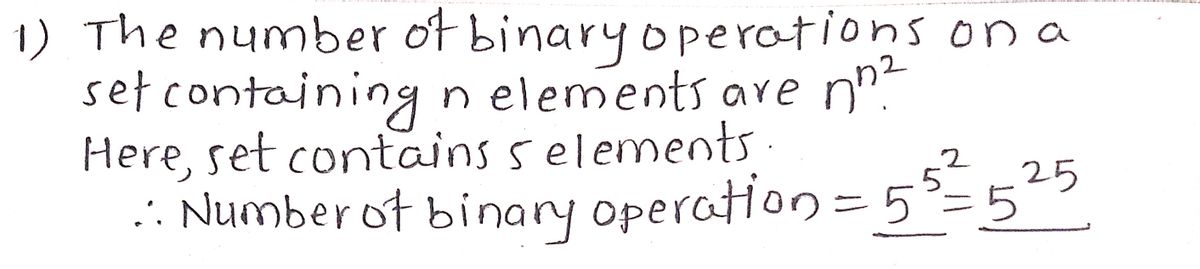 1) The number of binary operations on a
set containing n elements are n^n^2.
Here, set contains 5 elements.
∴ Number of binary operation = 5^5^2 = 5^25